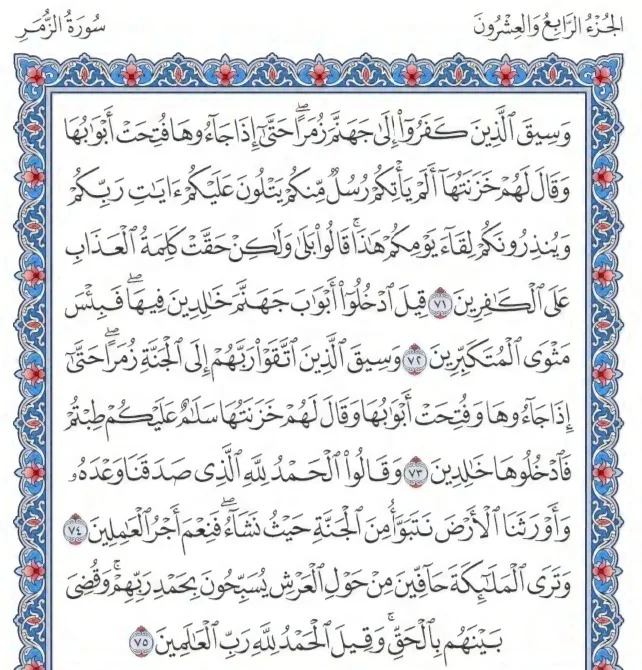 الجُزْءُ الرَّابِعُ وَالعِشْرُونَ سُورَةُ الزُّمَرِ
وَسِيقَ ٱلَّذِينَ كَفَرُوٓاْ إِلَىٰ جَهَنَّمَ زُمَرًاۖ حَتَّىٰٓ إِذَا جَآءُوهَا فُتِحَتْ أَبْوَٰبُهَا
وَقَالَ لَهُمْ خَزَنَتُهَآ أَلَمْ يَأْتِكُمْ رُسُلٌ مِّنكُمْ يَتْلُونَ عَلَيْكُمْ ءَايَٰتِ رَبِّكُمْ
وَيُنذِرُونَكُمْ لِقَآءَ يَوْمِكُمْ هَٰذَاۚ قَالُواْ بَلَىٰ وَلَٰكِنْ حَقَّتْ كَلِمَةُ ٱلْعَذَابِ
عَلَى ٱلْكَٰفِرِينَ ٧١ قِيلَ ٱدْخُلُوٓاْ أَبْوَٰبَ جَهَنَّمَ خَٰلِدِينَ فِيهَاۖ فَبِئْسَ
مَثْوَى ٱلْمُتَكَبِّرِينَ ٧٢ وَسِيقَ ٱلَّذِينَ ٱتَّقَوْاْ رَبَّهُمْ إِلَى ٱلْجَنَّةِ زُمَرًاۖ حَتَّىٰٓ
إِذَا جَآءُوهَا وَفُتِحَتْ أَبْوَٰبُهَا وَقَالَ لَهُمْ خَزَنَتُهَا سَلَٰمٌ عَلَيْكُمْ طِبْتُمْ
فَٱدْخُلُوهَا خَٰلِدِينَ ٧٣ وَقَالُواْ ٱلْحَمْدُ لِلَّهِ ٱلَّذِى صَدَقَنَا وَعْدَهُۥ
وَأَوْرَثَنَا ٱلْأَرْضَ نَتَبَوَّأُ مِنَ ٱلْجَنَّةِ حَيْثُ نَشَآءُۖ فَنِعْمَ أَجْرُ ٱلْعَٰمِلِينَ ٧٤
وَتَرَى ٱلْمَلَٰٓئِكَةَ حَآفِّينَ مِنْ حَوْلِ ٱلْعَرْشِ يُسَبِّحُونَ بِحَمْدِ رَبِّهِمْۚ وَقُضِىَ
بَيْنَهُم بِٱلْحَقِّۚ وَقِيلَ ٱلْحَمْدُ لِلَّهِ رَبِّ ٱلْعَٰلَمِينَ ٧٥